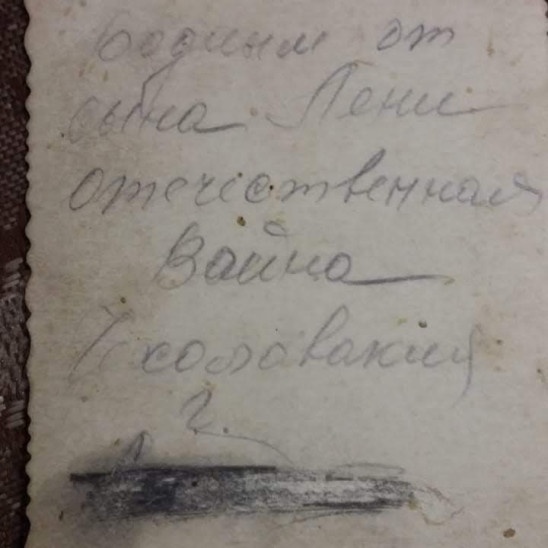 Родным от
сына Лени
отечественная
Война
Чехословакия
г.